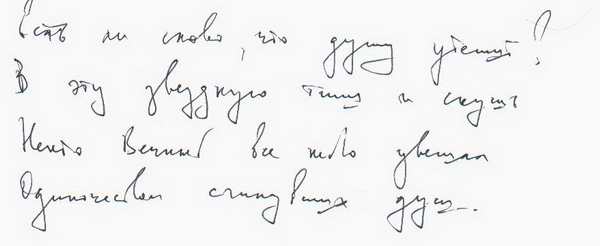 Есть ли слово, что душу утешит?
В эту звездную тишь и
Некто Вечный все небо увешал
Одиночеством сгинувших душ.